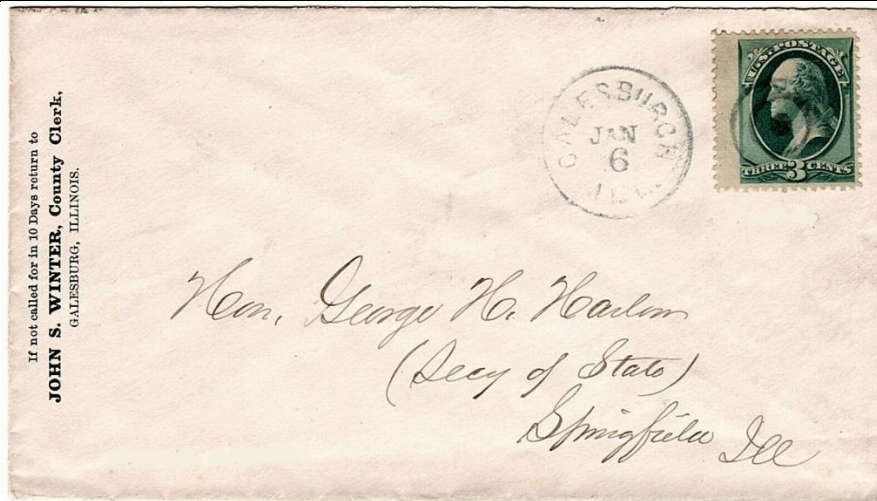 If not called for in 10 Days return to
JOHN S. WINTER, County Clerk,
GALESBURG, ILLINOIS.
GALESBURGH
JAN
6
ILL.
U.S. POSTAGE
THREE 3 CENTS
Hon. George H. Harlow
(Secy of State)
Springfield Ill